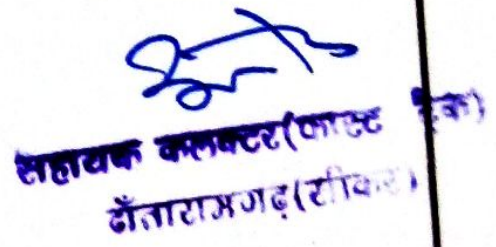 सहायक कलक्टर(फास्ट ट्रैक)
दाँतारामगढ़(सीकर)